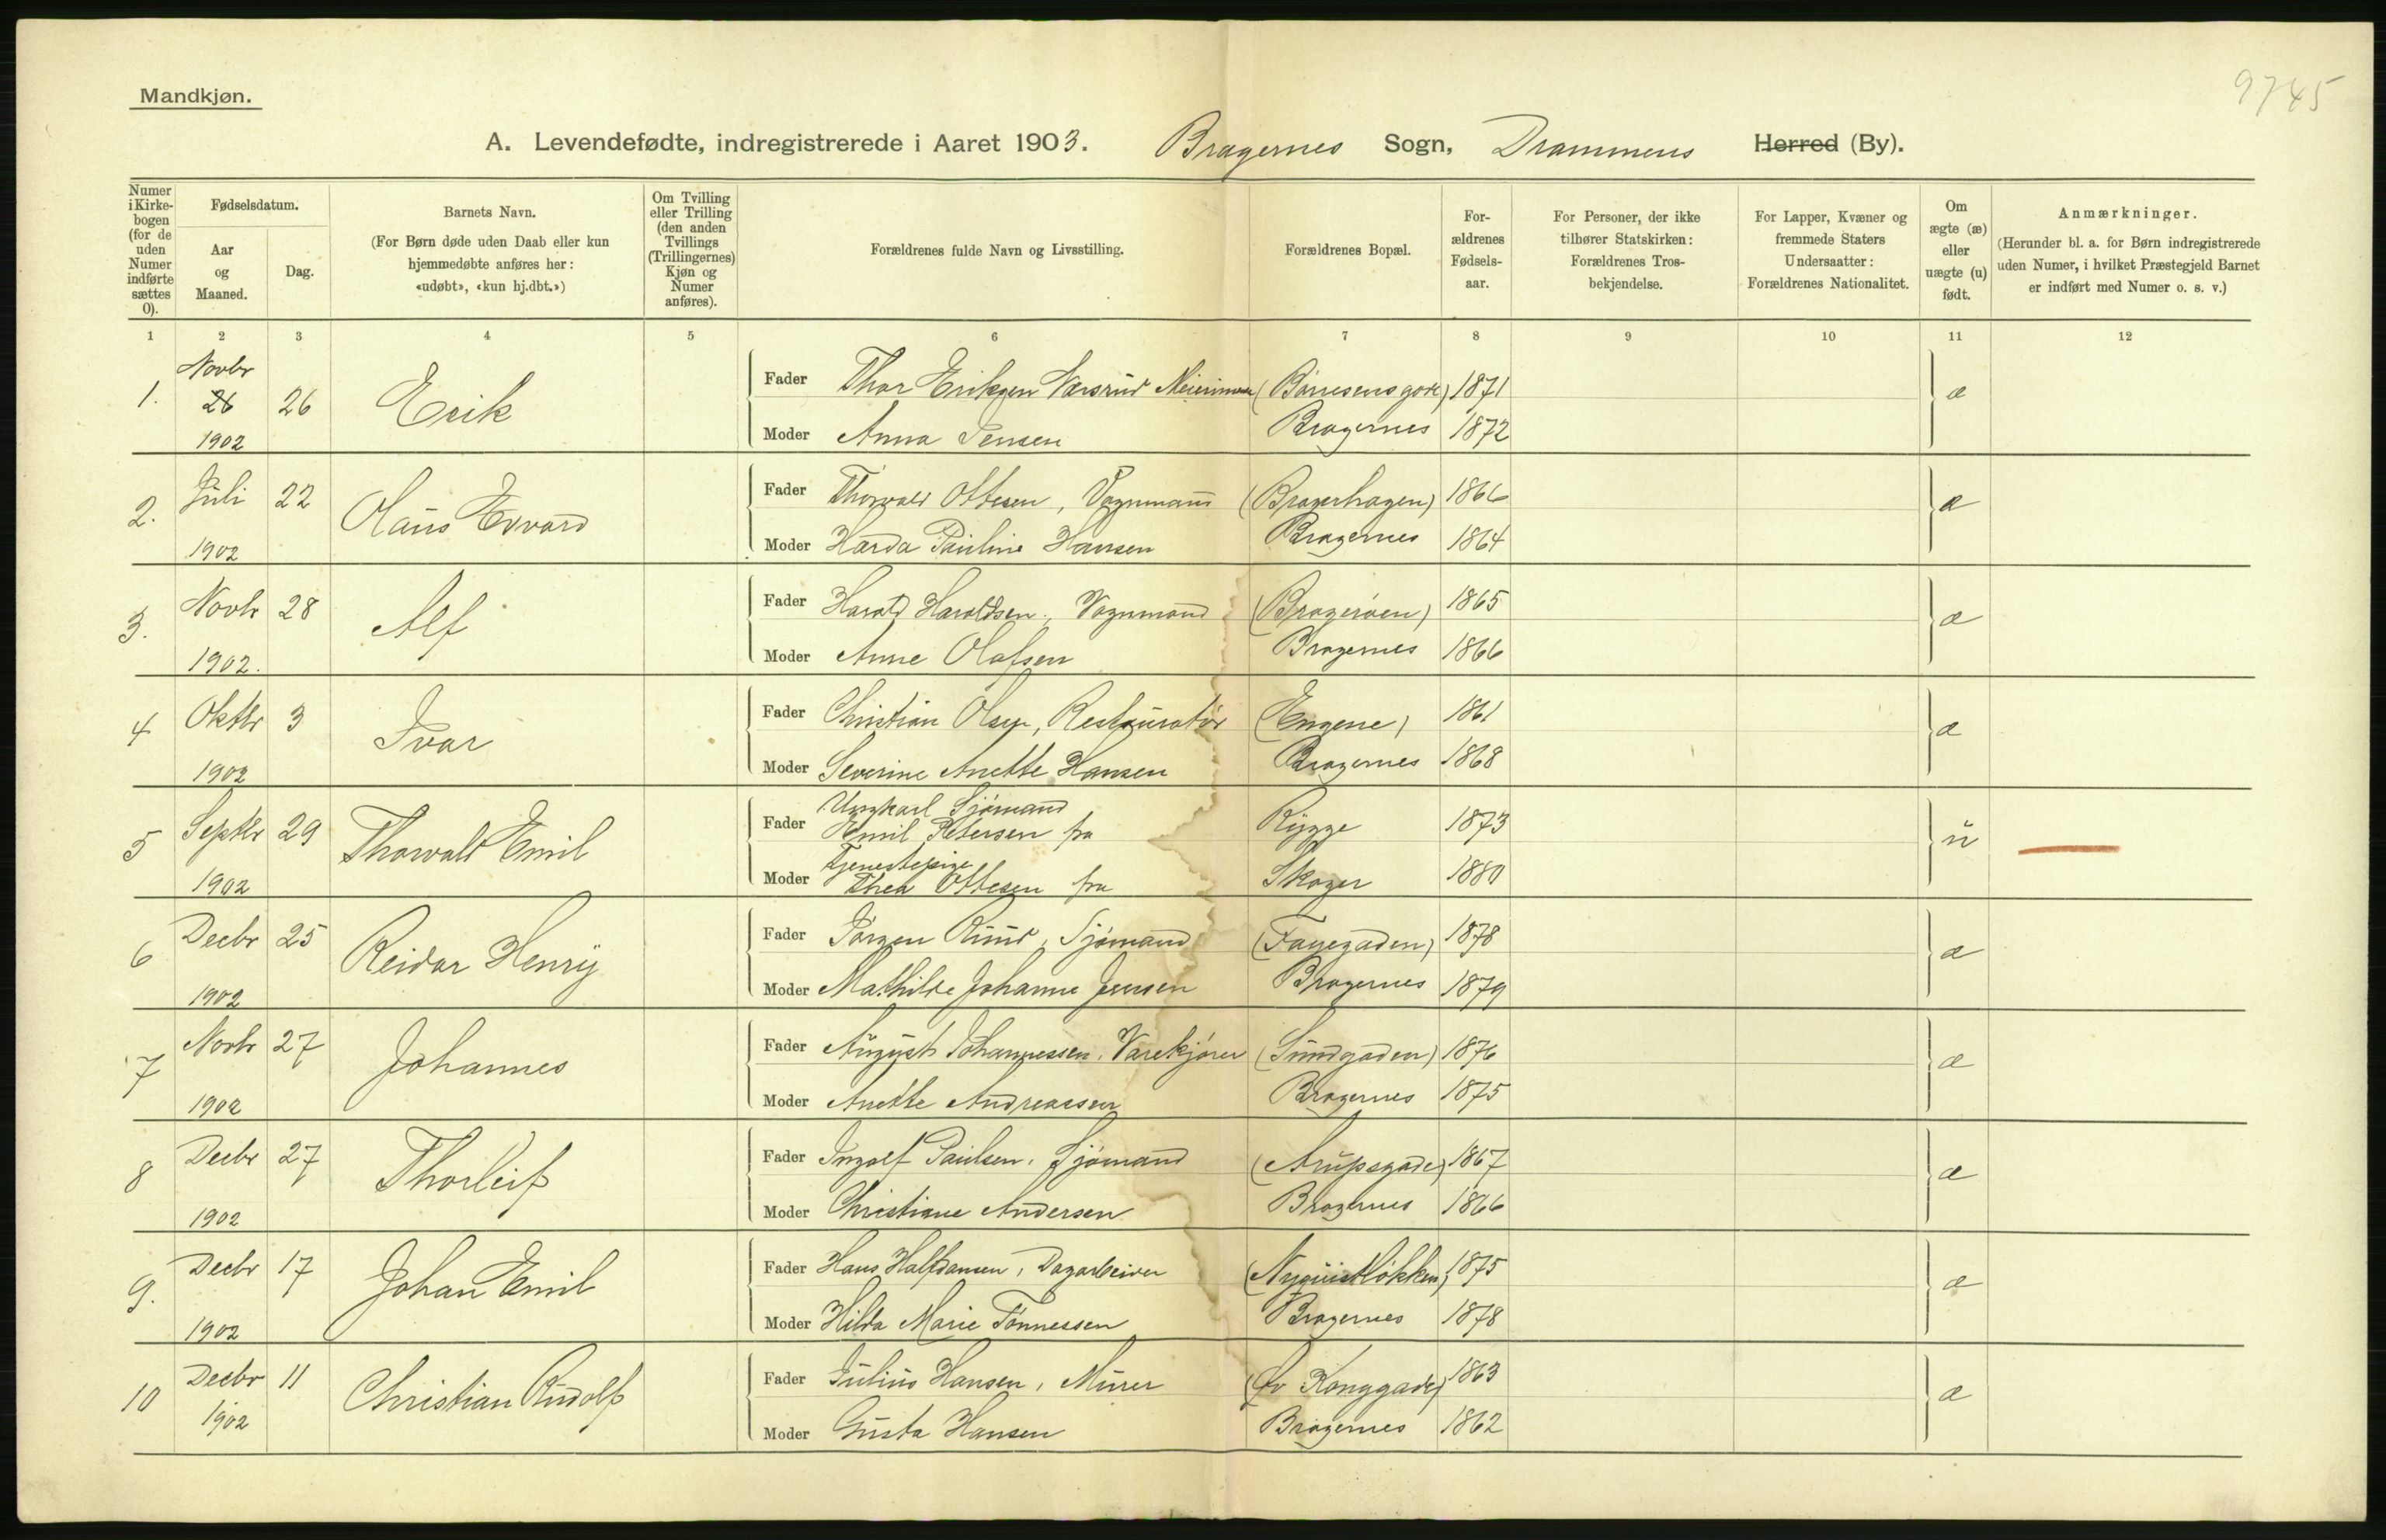 9745
Mandkjøn.
A. Levendefødte, indregistrerede i Aaret 1903. Bragernes Sogn, Drammens Herred (By).
Numer i Kirkebogen (for de uden Numer indførte sættes 0).
Fødselsdatum.
Aar og Maaned.
Dag.
Barnets Navn.
(For Børn døde uden Daab eller kun hjemmedøbte anføres her: «udøbt», «kun hj.dbt.»)
Om Tvilling eller Trilling (den anden Tvillings (Trillingernes) Kjøn og Numer anføres).
Forældrenes fulde Navn og Livsstilling.
Forældrenes Bopæl.
Forældrenes Fødselsaar.
For Personer, der ikke tilhører Statskirken: Forældrenes Trosbekjendelse.
For Lapper, Kvæner og fremmede Staters Undersaatter: Forældrenes Nationalitet.
Om ægte (æ) eller uægte (u) født.
Anmærkninger.
(Herunder bl. a. for Børn indregistrerede uden Numer, i hvilket Præstegjeld Barnet er indført med Numer o. s. v.)
1 2 3 4 5 6 7 8 9 10 11 12
1. Novbr 26 1902 26 Erik
Fader Thor Eriksen (Börresensgade) 1871 æ
Moder Anna Jensen Bragernes 1872
2. Juli 1902 22 Olaus Edvard
Fader Thorvald Ottesen, Vognmand (Bragerhagen) 1866 æ
Moder Harda Pauline Hansen Bragernes 1864
3. Novbr 1902. 28 Alf
Fader Harald Haraldsen, Vognmand (Brageröen) 1865 æ
Moder Anne Olafsen Bragernes 1866
4 Oktbr 1902 3 Ivar
Fader Christian Olsen, Restauratör (Engene) 1861 æ
Moder Severine Anette Hansen Bragernes 1868
5 Septbr 1902 29 Thorvald Emil
Fader Ungkarl Sjömand
Emil Petersen fra Rygge 1873 u
Moder Tjenestepige
Thea Ottesen fra Skoger 1880
6 Decbr 1902 25 Reidar Henry
Fader Jörgen Ruud, Sjömand (Fayegaden) 1878 æ
Moder Mathilde Johanne Jensen Bragernes 1879
7 Novbr 1902 27 Johannes
Fader August Johannessen, Varekjörer (Sundgaden) 1876 æ
Moder Anette Andreassen Bragernes 1875
8 Decbr 1902 27 Thorleif
Fader Ingolf Paulsen, Sjömand (Arupsgade) 1867 æ
Moder Christiane Andersen Bragernes 1866
9. Decbr 1902 17 Johan Emil
Fader Hans Halfdansen, Dagarbeider (Nyquistlökken) 1875 æ
Moder Hilda Marie Tönnessen Bragernes 1878
10 Decbr 1902 11 Christian Rudolf
Fader Julius Hansen, Murer (Öv Konggade) 1863 æ
Moder Gusta Hansen Bragernes 1862